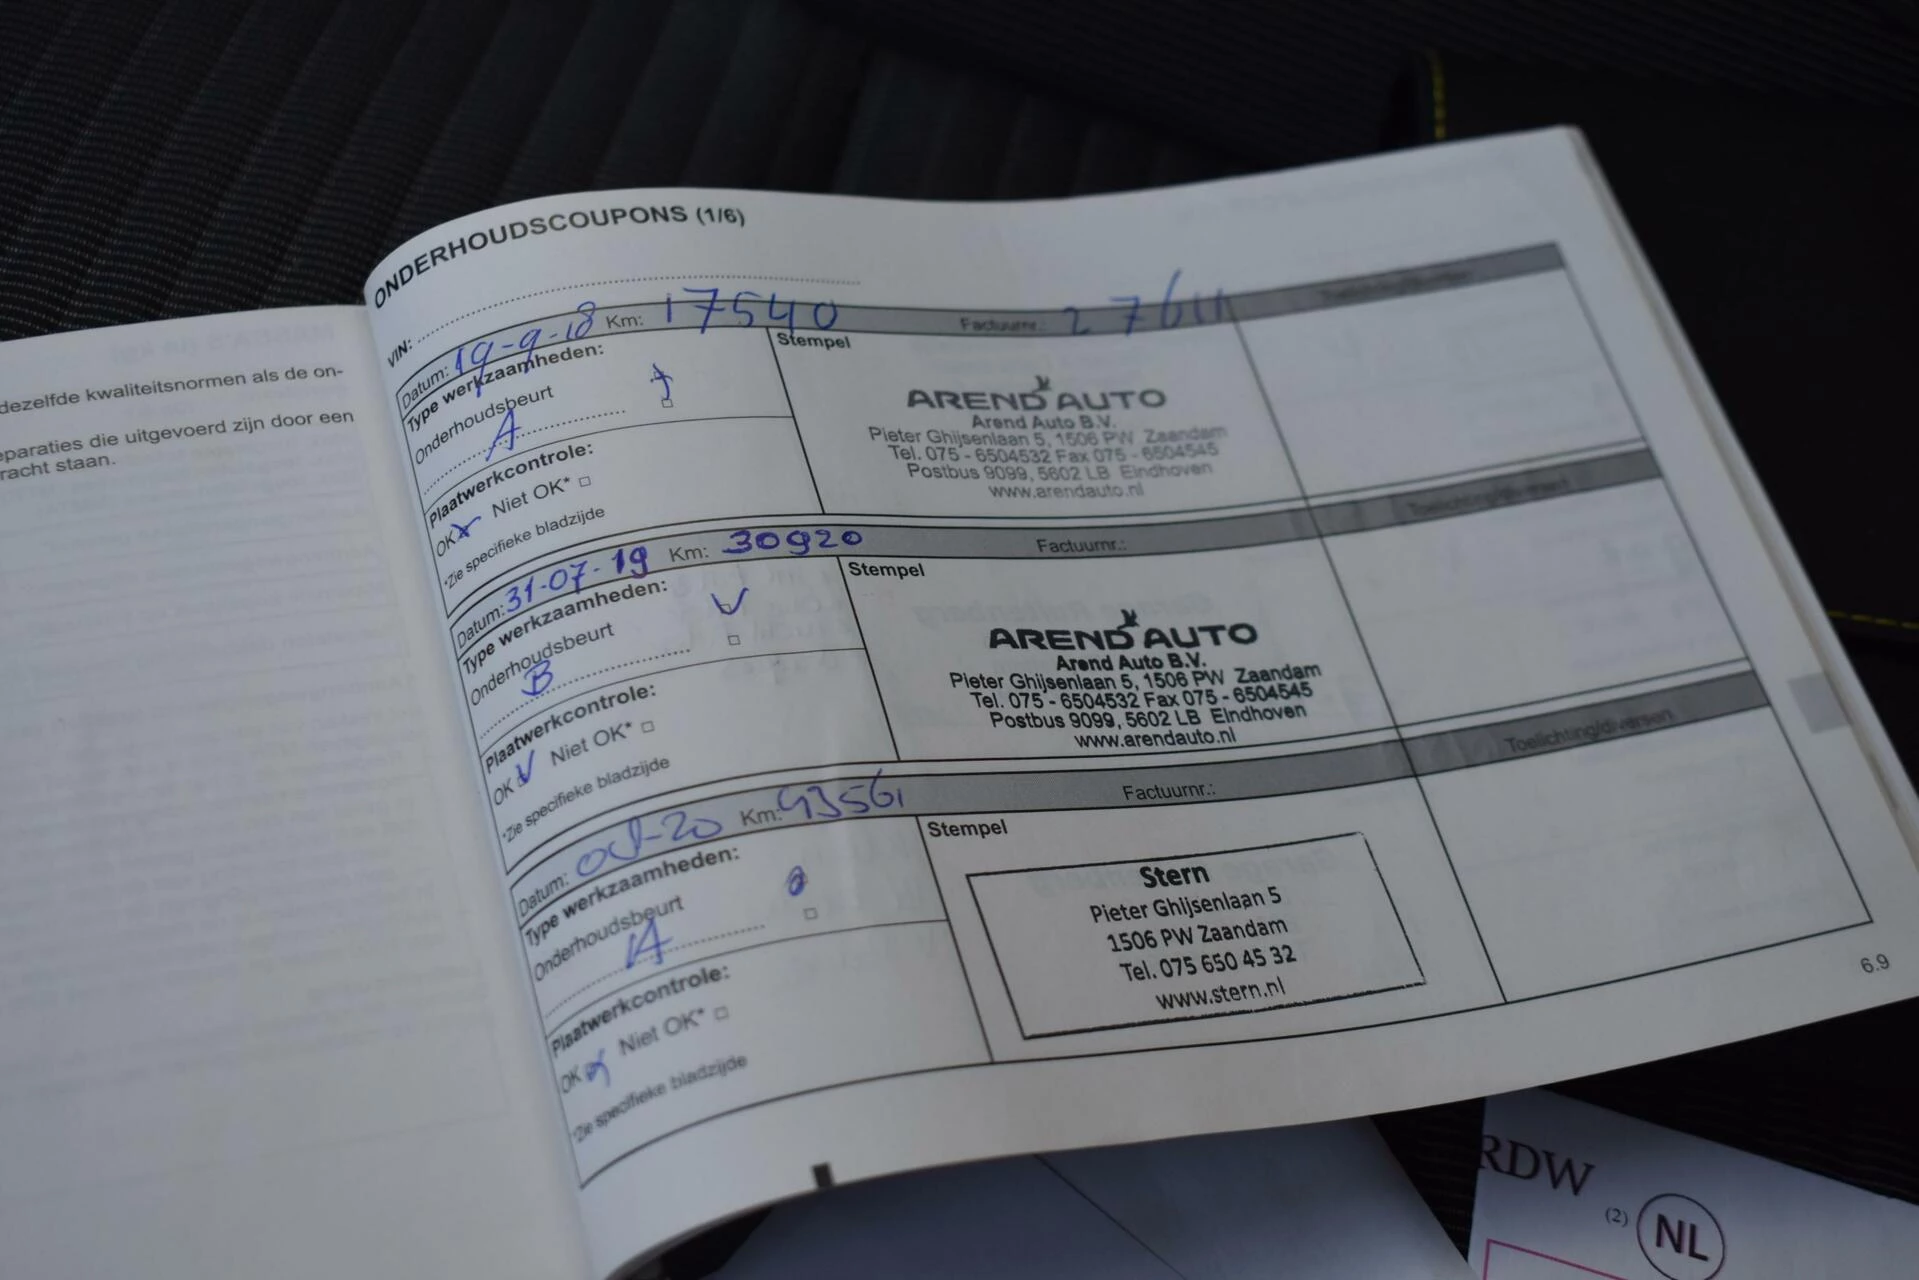 dezelfde kwaliteitsnormen als de on-
eparaties die uitgevoerd zijn door een
racht staan.
ONDERHOUDSCOUPONS (1/6)
VIN:
Datum: 19-9-18 Km: 17540 Factuurnr.: 27611
Type werkzaamheden:
Onderhoudsbeurt
A
Plaatwerkcontrole:
OK Niet OK*
*Zie specifieke bladzijde
Stempel
AREND AUTO
Arend Auto B.V.
Pieter Ghijsenlaan 5, 1506 PW Zaandam
Tel. 075 - 6504532 Fax 075 - 6504545
Postbus 9099, 5602 LB Eindhoven
www.arendauto.nl
Datum: 31-07-19 Km: 30920 Factuurnr.: Toelichting/diversen
Type werkzaamheden:
Onderhoudsbeurt
B
Plaatwerkcontrole:
OK Niet OK*
*Zie specifieke bladzijde
Stempel
AREND AUTO
Arend Auto B.V.
Pieter Ghijsenlaan 5, 1506 PW Zaandam
Tel. 075 - 6504532 Fax 075 - 6504545
Postbus 9099, 5602 LB Eindhoven
www.arendauto.nl
Datum: okt-20 Km: 43561 Factuurnr.: Toelichting/diversen
Type werkzaamheden:
Onderhoudsbeurt
A
Plaatwerkcontrole:
OK Niet OK*
*Zie specifieke bladzijde
Stempel
Stern
Pieter Ghijsenlaan 5
1506 PW Zaandam
Tel. 075 650 45 32
www.stern.nl
6.9
RDW
(2) NL